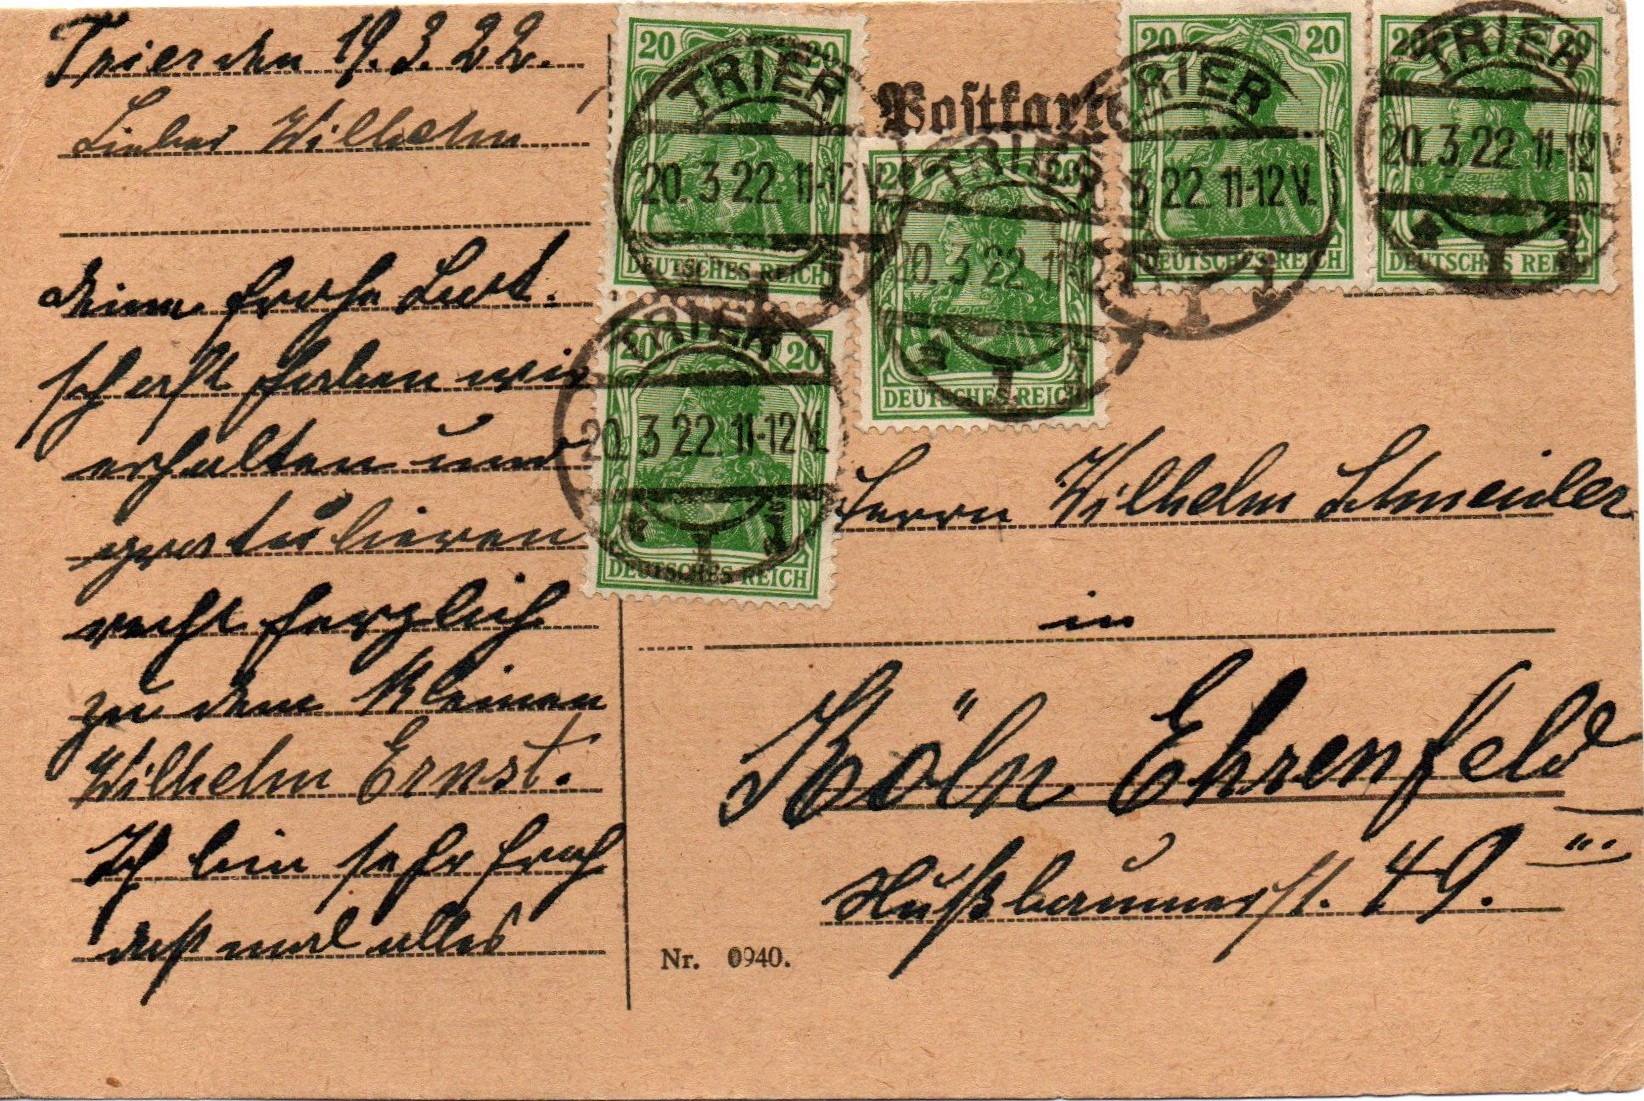 Trier den 19.3.22.
Lieber Wilhelm
deine frohe Bot-
schaft haben wir
erhalten und
gratulieren
recht herzlich
zu dem kleinen
Wilhelm Ernst.
Ich bin sehr froh
daß mal alles
Postkarte
20 20
DEUTSCHES REICH
TRIER
20.3.22.11-12V.
1
20 20
DEUTSCHES REICH
TRIER
20.3.22.11-12V.
1
20 20
DEUTSCHES REICH
TRIER
20.3.22.11-12V.
1
20 20
DEUTSCHES REICH
TRIER
20.3.22.11-12V.
1
20 20
DEUTSCHES REICH
TRIER
20.3.22.11-12V.
1
Herrn Wilhelm Schneider
in
Köln Ehrenfeld
Nußbaumerst. 49.III
Nr. 0940.